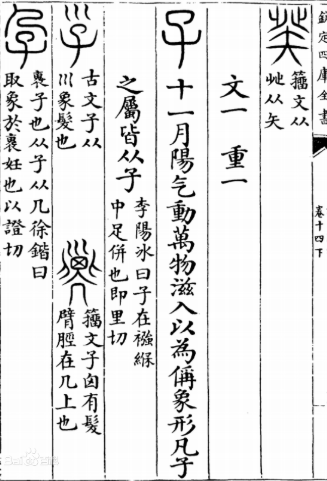 欽定四庫全書
卷十四下
籒文从
𡳿从矢
文一　重一
子
十一月陽气動萬物滋入以為偁象形凡子
之屬皆从子
李陽冰曰子在襁緥
中足併也即里切
古文子从
巛象髮也
籒文子囟有髮
臂脛在几上也
孕
裹子也从子从几徐鍇曰
取象於裹妊也以證切